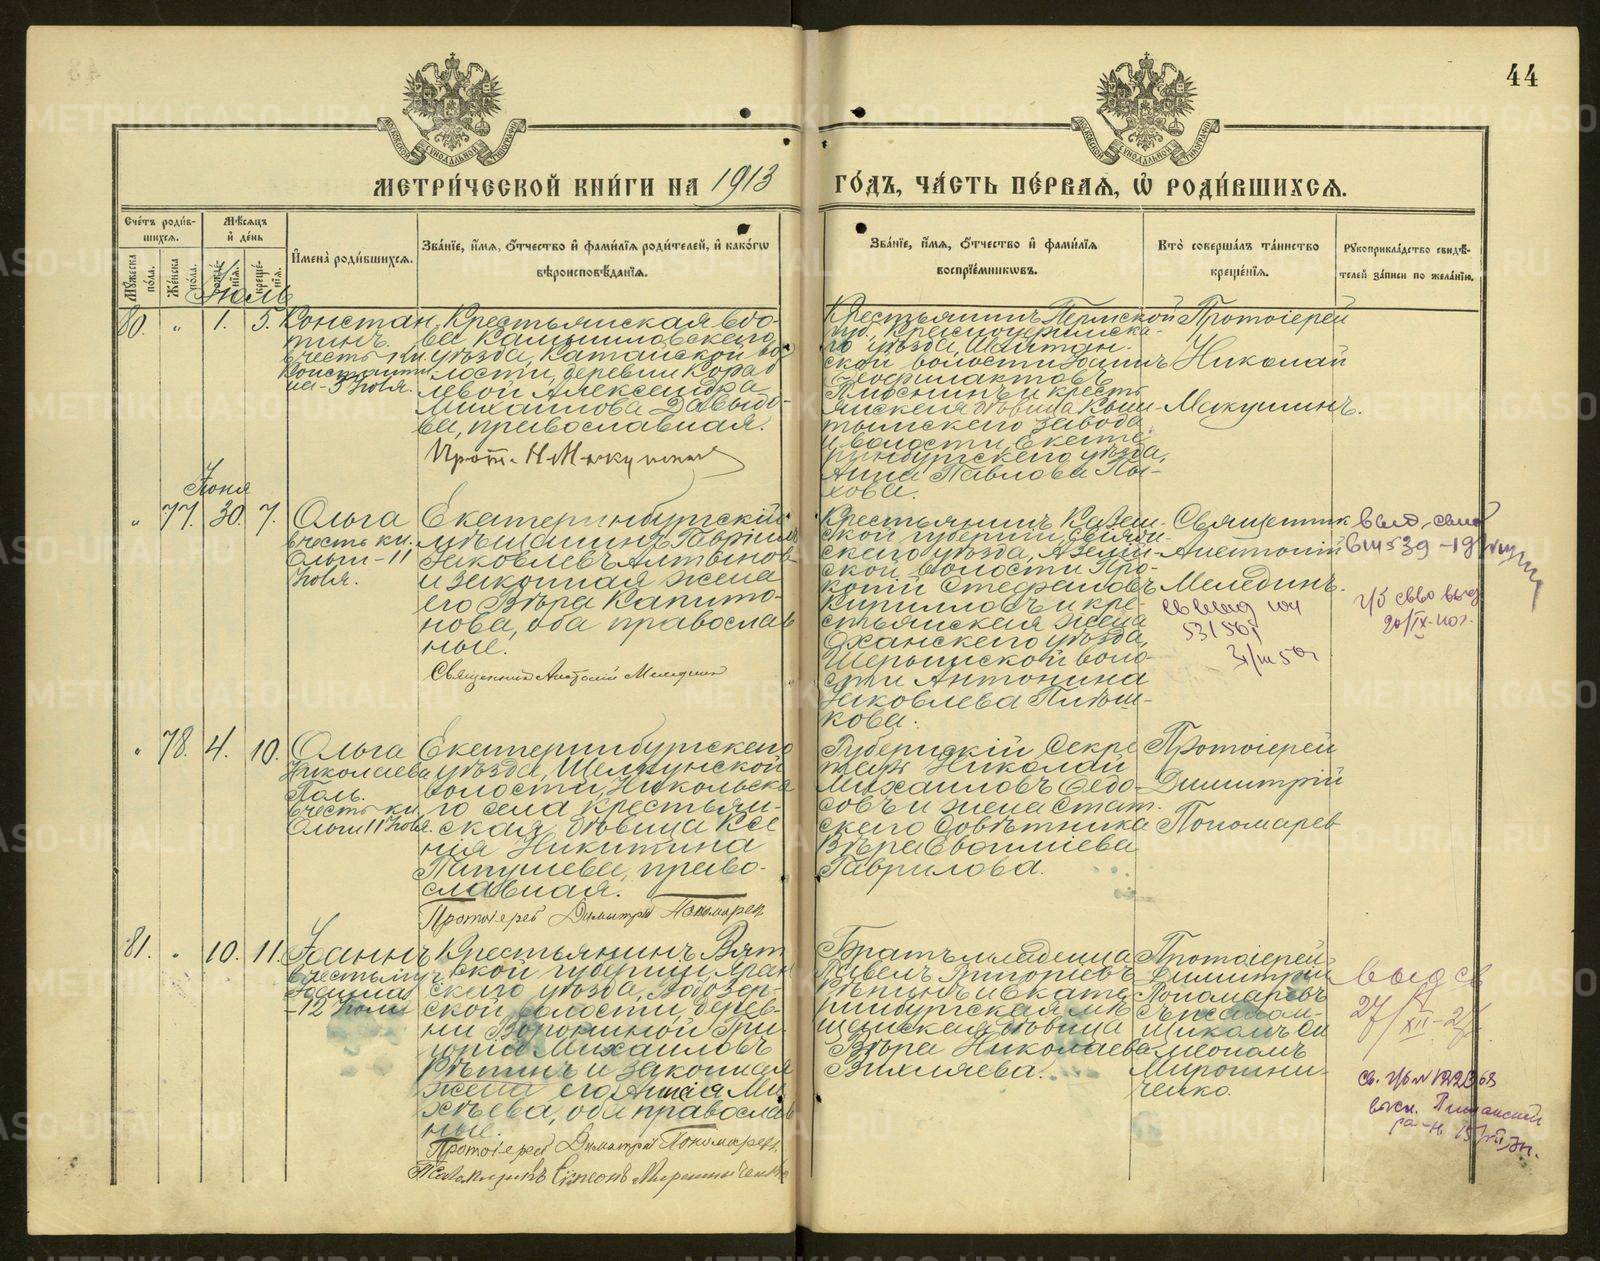 44
МЕТРИ́ЧЕСКОЙ КНИ́ГИ НА 1913 ГО́ДЪ, ЧА́СТЬ ПЕ́РВАЯ, Ѡ РОДИ́ВШИХСЯ.
Счетъ роди́в-
шихся.
Му́жеска по́ла.
Же́нска по́ла.
Мѣсяцъ
и де́нь
рожде́-
нія.
креще́-
нія.
Имена̀ роди́вшихся.
Зва́ніе, и́мя, о́тчество и фами́лія роди́телей, и како́гѡ
вѣроисповѣ́данія.
Зва́ніе, и́мя, о́тчество и фами́лія
воспріе́мниковъ.
Кто̀ соверша́лъ та́инство
креще́нія.
Рукоприкла́дство свидѣ́-
телей за́писи по жела́нію.
Іюль
80. " 1. 5.
Констан
тинъ.
Крестьянская вдо-
ва Камышловскаго
уѣзда, Катайской во
лости, деревни Кора
левой Александра
Михаилова Давыдо-
ва, православная.
Прот. Н. Макушин
Крестьянинъ Пермской
губ. Красноуфимска-
го уѣзда, Шайтан-
ской волости Іоаннъ
Феофилактовъ
и кресть
янская дѣвица Кыш-
тымскаго завода
и волости Екате
ринбургскаго уѣзда,
Анна Павлова Пы-
хова.
Протоіерей
Николай
Макушинъ.
Іюня
" 77. 30. 7.
Ольга
въ честь кн.
Ольги - 11
Іюля.
Екатеринбургскій
мѣщанинъ Гавріилъ
Яковлевъ Алтынов
и законная жена
его Вѣра Капито-
нова, оба православ
ные.
Священникъ Анатолій Мелединъ
Крестьянинъ Казан-
ской губерніи, Свіяж-
скаго уѣзда, Азелей-
ской волости Про-
копій Стефановъ
Кирилловъ и кре-
стьянская жена
Оханскаго уѣзда,
Шерьинской воло-
сти Антонина
Яковлева Плѣш-
кова.
Священник
Анатолій
Мелединъ.
" 78. 4. 10.
Ольга
Николаева
въ честь кн.
Ольги 11 Іюля.
Екатеринбургскаго
уѣзда, Щелкунской
волости, Никольска
го села крестьян-
ская дѣвица Ксе
нія Никитина
православ-
славная.
Протоіерей Димитрій Пономарев
Губернскій Секре
тарь Николай
Михаиловъ Федо-
совъ и жена Стат.
скаго Совѣтника
Вѣра Евфиміева
Гаврилова.
Протоіерей
Димитрій
Пономарев
81. " 10. 11.
Іоаннъ
въ честь муч.
Іоанна
- 12 Іюля
Крестьянинъ Вят
ской губерніи Яран
скаго уѣзда, Водозер-
ской волости, дерев-
ни Ворониной Гри-
горій Михаиловъ
Рѣпинъ и законная
жена его Анисія Ми
хѣева, оба православ
ные.
Протоіерей Димитрій Пономарев.
Псаломщикъ Симеонъ Мирошниченко
Братъ младенца
Павелъ Григорьевъ
Рѣпинъ и Екате
ринбургская мѣ
щанская дѣвица
Вѣра Николаева
Вихляева.
Протоіерей
Димитрій
Пономаревъ
съ псалом-
щикомъ Си
меономъ
Мирошни-
ченко.